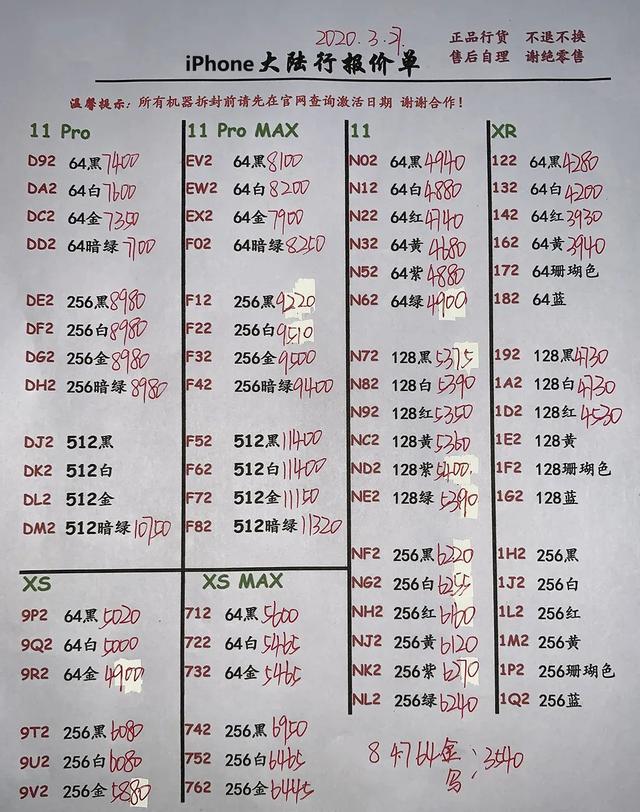 2020.3.31
正品行货 不退不换
售后自理 谢绝零售
iPhone 大陆行报价单
温馨提示: 所有机器拆封前请先在官网查询激活日期 谢谢合作!
11 Pro
D92 64黑 7400
DA2 64白 7600
DC2 64金 7350
DD2 64暗绿 7100
DE2 256黑 8980
DF2 256白 8980
DG2 256金 8980
DH2 256暗绿 8980
DJ2 512黑
DK2 512白
DL2 512金
DM2 512暗绿 10750
XS
9P2 64黑 5020
9Q2 64白 5000
9R2 64金 4900
9T2 256黑 6080
9U2 256白 6080
9V2 256金 5880
11 Pro MAX
EV2 64黑 8100
EW2 64白 8200
EX2 64金 7900
F02 64暗绿 8250
F12 256黑 9220
F22 256白 9510
F32 256金 9500
F42 256暗绿 9400
F52 512黑 11400
F62 512白 11400
F72 512金 11150
F82 512暗绿 11320
XS MAX
712 64黑 5600
722 64白 5465
732 64金 5465
742 256黑 6950
752 256白 6465
762 256金 6445
11
N02 64黑 4940
N12 64白 4880
N22 64红 4740
N32 64黄 4680
N52 64紫 4880
N62 64绿 4900
N72 128黑 5375
N82 128白 5390
N92 128红 5350
NC2 128黄 5360
ND2 128紫 5400
NE2 128绿 5390
NF2 256黑 6220
NG2 256白 6255
NH2 256红 6160
NJ2 256黄 6120
NK2 256紫 6270
NL2 256绿 6240
XR
122 64黑 4280
132 64白 4200
142 64红 3930
162 64黄 3940
172 64珊瑚色
182 64蓝
192 128黑 4730
1A2 128白 4730
1D2 128红 4530
1E2 128黄
1F2 128珊瑚色
1G2 128蓝
1H2 256黑
1J2 256白
1L2 256红
1M2 256黄
1P2 256珊瑚色
1Q2 256蓝
8 4764金
: 3540